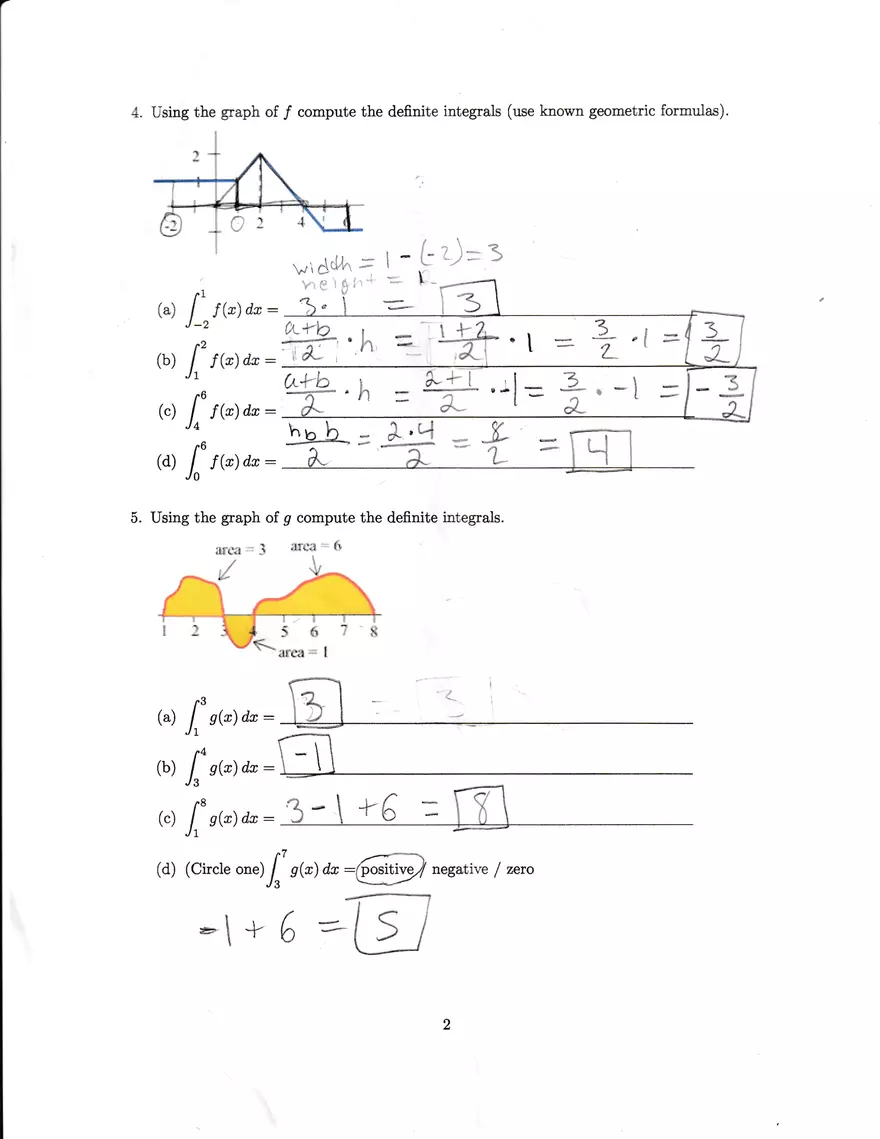 4. Using the graph of f compute the definite integrals (use known geometric formulas).
2
-2 0 2 4
width = 1 - (-2) = 3
height = 1
(a) ∫_{-2}^{1} f(x) dx = 3 · 1 = 3
(b) ∫_{1}^{2} f(x) dx = (a+b)/2 · h = (1+2)/2 · 1 = 3/2 · 1 = 3/2
(c) ∫_{4}^{6} f(x) dx = (a+b)/2 · h = (2+1)/2 · -1 = 3/2 · -1 = -3/2
(d) ∫_{0}^{6} f(x) dx = h b/2 = 2·4/2 = 8/2 = 4
5. Using the graph of g compute the definite integrals.
area = 3 area = 6
1 2 3 4 5 6 7 8
area = 1
(a) ∫_{1}^{3} g(x) dx = 3 = 3
(b) ∫_{3}^{4} g(x) dx = -1
(c) ∫_{1}^{8} g(x) dx = 3 - 1 + 6 = 8
(d) (Circle one) ∫_{3}^{7} g(x) dx = positive / negative / zero
-1 + 6 = 5
2